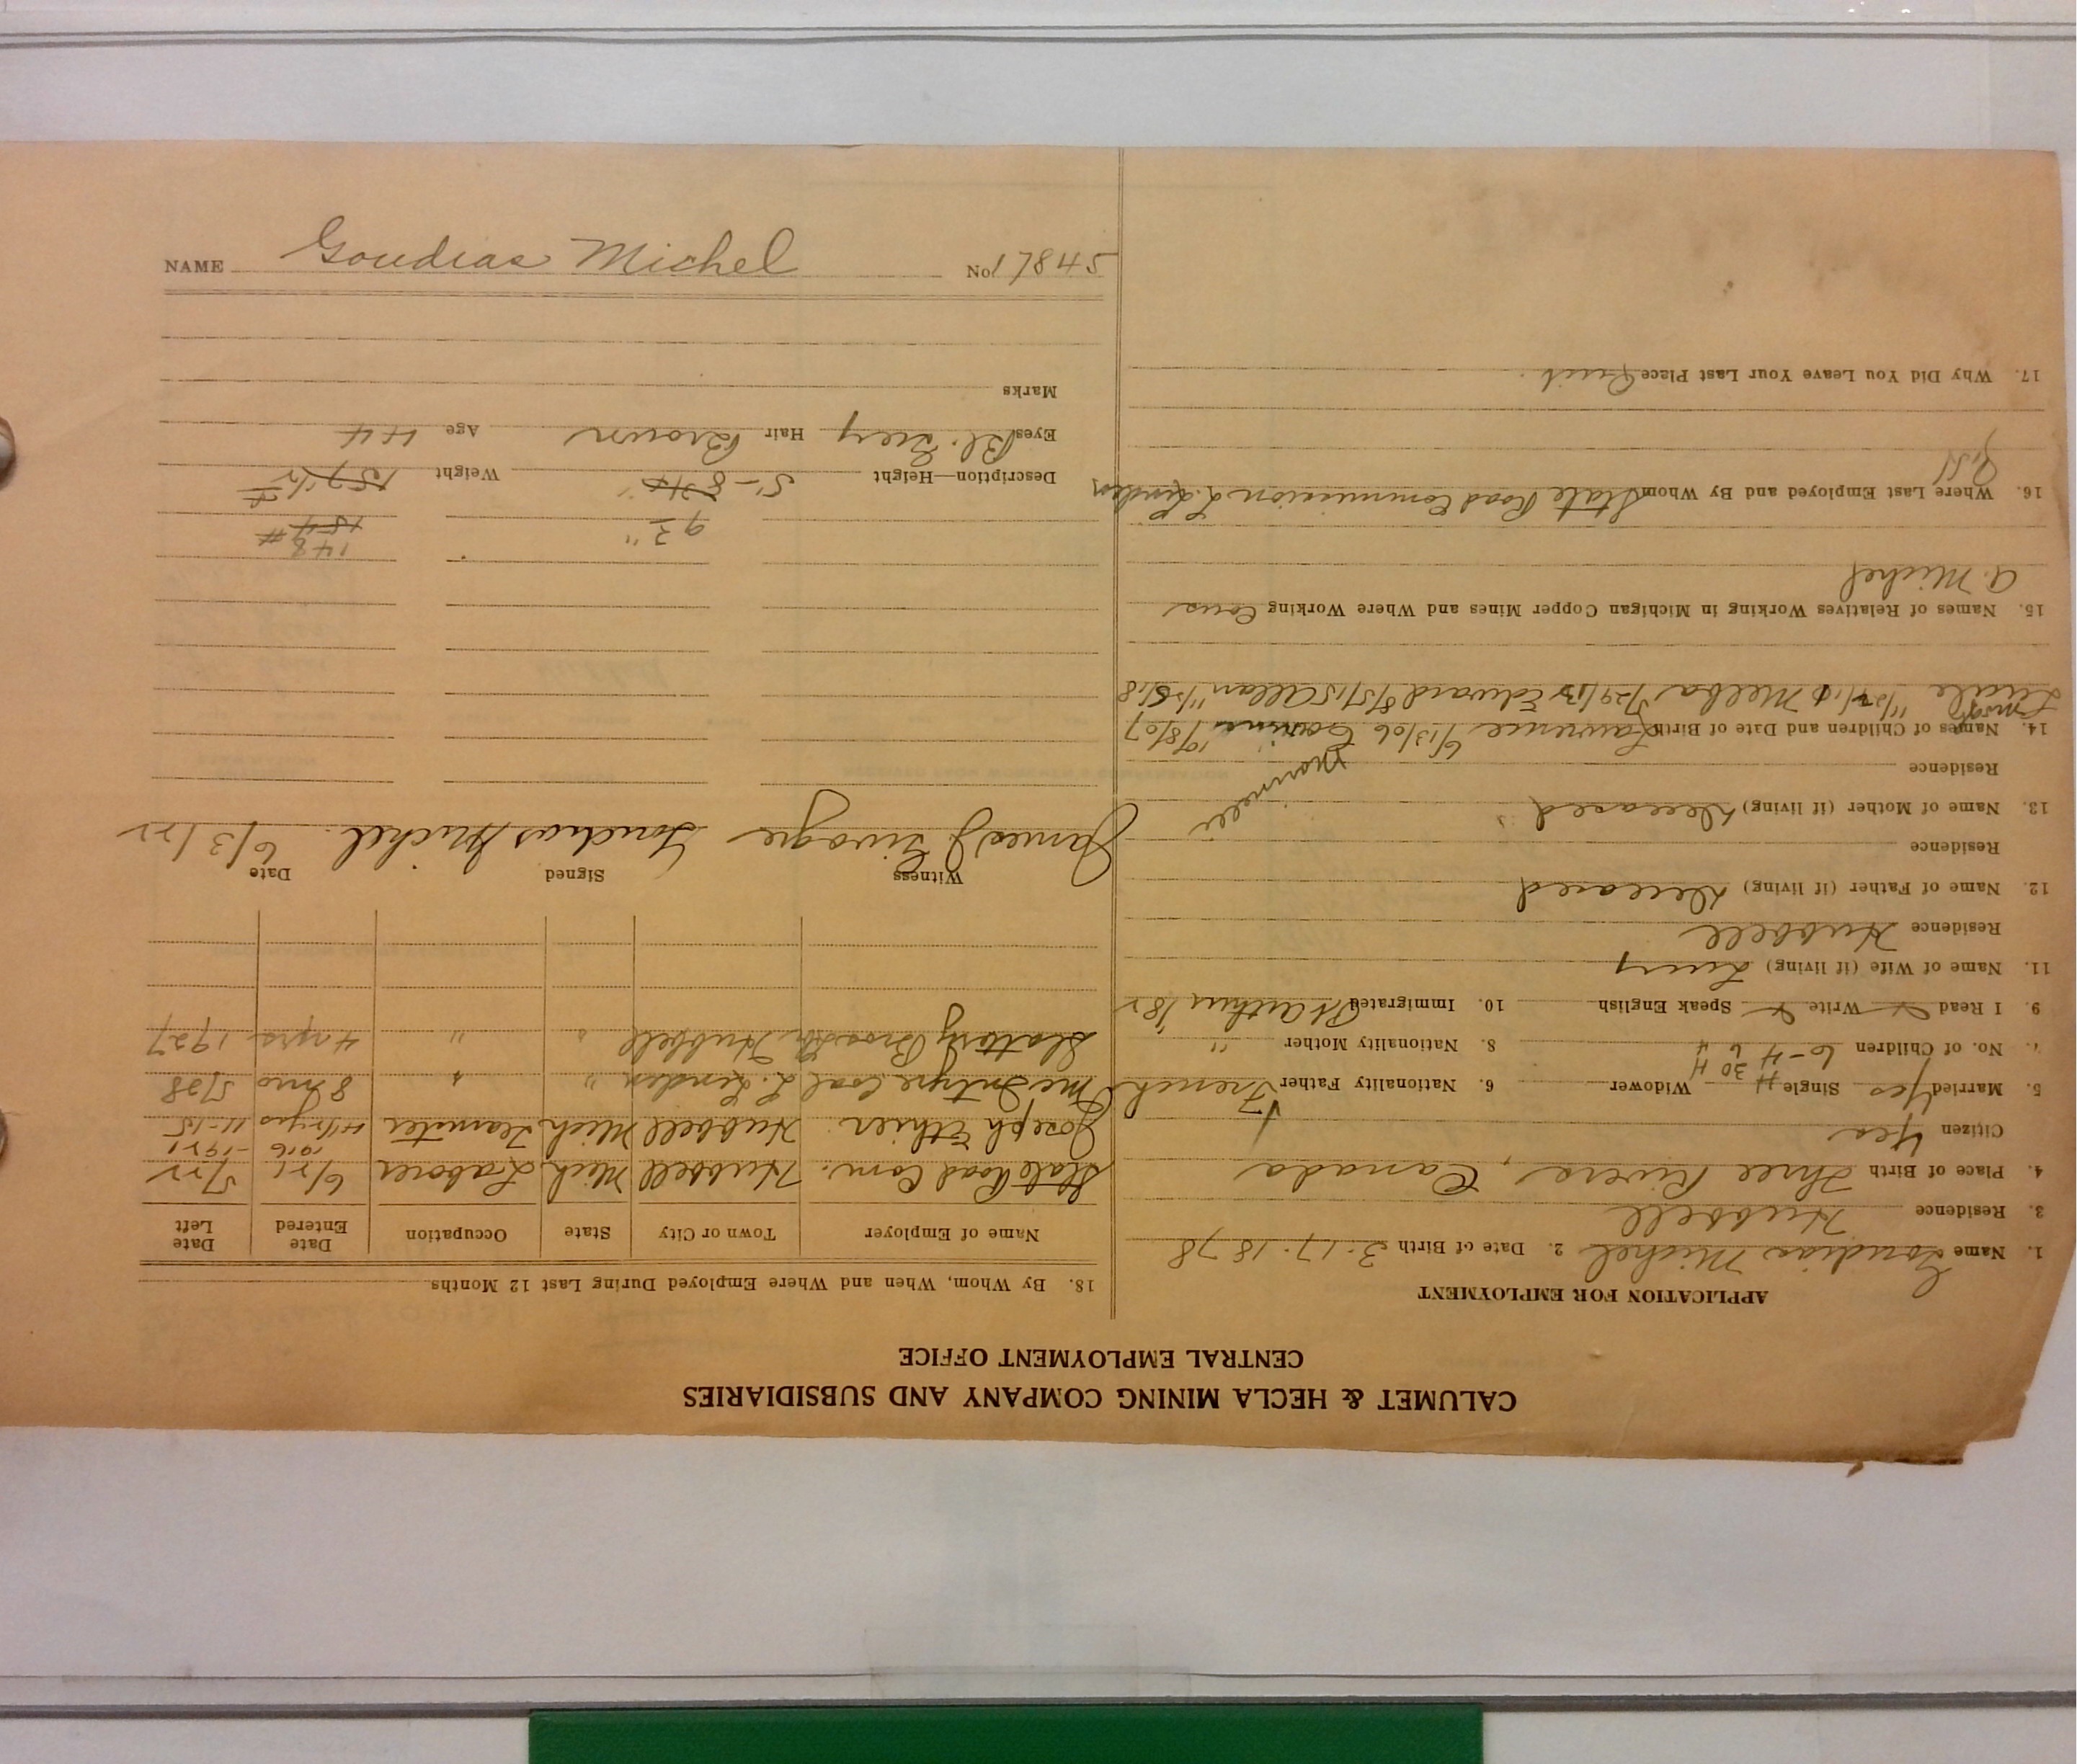 CALUMET & HECLA MINING COMPANY AND SUBSIDIARIES
CENTRAL EMPLOYMENT OFFICE
APPLICATION FOR EMPLOYMENT
1. Name Goudias Michel 2. Date of Birth 3-17-1878
3. Residence Hubbell
4. Place of Birth Three Rivers, Canada
Citizen Yes
5. Married Yes Single Widower 6. Nationality Father French
7. No. of Children 6-4 8. Nationality Mother "
9. I Read Write Speak English 10. Immigrated Pt Arthur
11. Name of Wife (if living)
Residence Hubbell
12. Name of Father (if living) Deceased
Residence
13. Name of Mother (if living) Deceased
Residence
14. Names of Children and Date of Birth Lawrence 6/13/06 10/8/07
Melba Edward 8/5/15 Allan
15. Names of Relatives Working in Michigan Copper Mines and Where Working
A. Michel
16. Where Last Employed and By Whom State Road Commission L. Linden
17. Why Did You Leave Your Last Place Quit
18. By Whom, When and Where Employed During Last 12 Months
Name of Employer Town or City State Occupation Date Entered Date Left
State Road Com. Hubbell Mich Laborer 6/21 5/22
1916 -1921
Joseph Ethier. Hubbell Mich Teamster 11-15
McIntyre Coal L. Linden " " 8 mo 5/28
Slattery Bros Hubbell " " 4 yrs 1927
Witness Signed Date
James J Goudias Michel 6/3/22
148
9 3/4" 154 #
Description—Height 5'-8 3/4 Weight 157 1/2 #
Eyes Bl. Grey Hair Brown Age 44
Marks
NAME Goudias Michel No. 17845